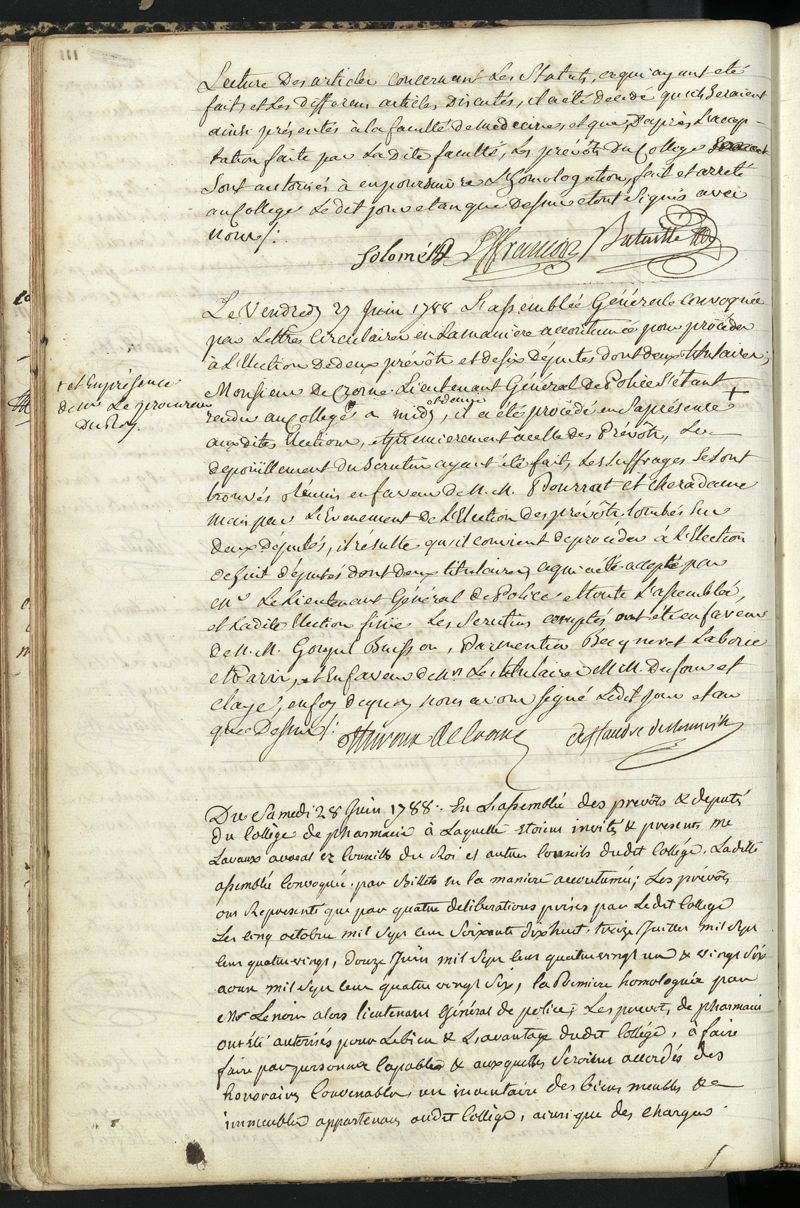 111
Lecture Des articles concernant Les Statuts, ce qui ayant eté
faits et Les differens articles Discutés, il a eté décidé qu'ils Seraient
ainsi présentés à la faculté de Médecine, et que, D'après L'accep-
tation faite par La dite faculté, Les prévôts Du College
Sont autorisés à en poursuivre L'homologation, fait et arreté
au College Le dit jour et an que Dessus et ont Signés avec
Nous /:
Solomé
Le Vendredy 27 Juin 1788 L'assemblée Générale Convoquée
par Lettres Circulaires en La maniere accoutumée pour procéder
à L'Election De deux prévôts et de six députés dont deux titulaires,
Monsieur De Crosne Lieutenant Général de Police S'étant
rendu au College a midy et demye, il a eté procédé en Sa présence +
+ et En présence
de Mr Le procureur
Du Roy.
aux dites Elections, et premierement a celle des Prévôts, Le
dépouillement du Scrutin ayant été fait, Les Suffrages Se Sont
trouvés réunis en faveur de M. M. Pourrat et Cheradame
Mais par L'Evenement de L'Election des prévôts tombés Sur
deux Députés, il résulte qu'il convient de procéder à L'Election
de huit députés dont Deux titulaires, ce qui a été adopté par
Mr Le Lieutenant Général de Police et toute L'assemblée,
et La dite Election finie Les Scrutins comptés ont été en faveur
de M. M. Buisson, Parmentier Becqueret Laborie
et Parin, et En faveur de Mrs Les titulaires M. M. Dufour et
Claye, en foy de quoy Nous avons Signé Le dit jour et an
que Dessus /:
Thiroux de Crosne
Du Samedi 28 Juin 1788. En L'assemblée des prevôts & deputés
du Collège de pharmacie à Laquelle étoient invités & presents me
Lavaux avocat ez Conseils du Roi et autres Conseils dudit Collège. La ditte
assemblée Convoquée par Billets en la manière accoutumée; Les prévôts
ont Représenté que par quatre deliberations prises par Ledit College
Les cinq octobre mil Sept cent Soixante dix huit, treize Juillet mil Sept
cent quatre vingt, douze Juin mil Sept cent quatre vingt un & vingt Six
aout mil Sept cent quatre vingt Six, la Premiere homologuée par
Mr Lenoir alors lieutenant Général de police; Les prevots de pharmacie
ont été autorisés pour Le bien & L'avantage dudit Collège, à faire
faire par personnes Capables & auxquelles Seroient accordés des
honoraires Convenables, un inventaire des biens meubles &
immeubles appartenans audit Collège, ainsi que des charges